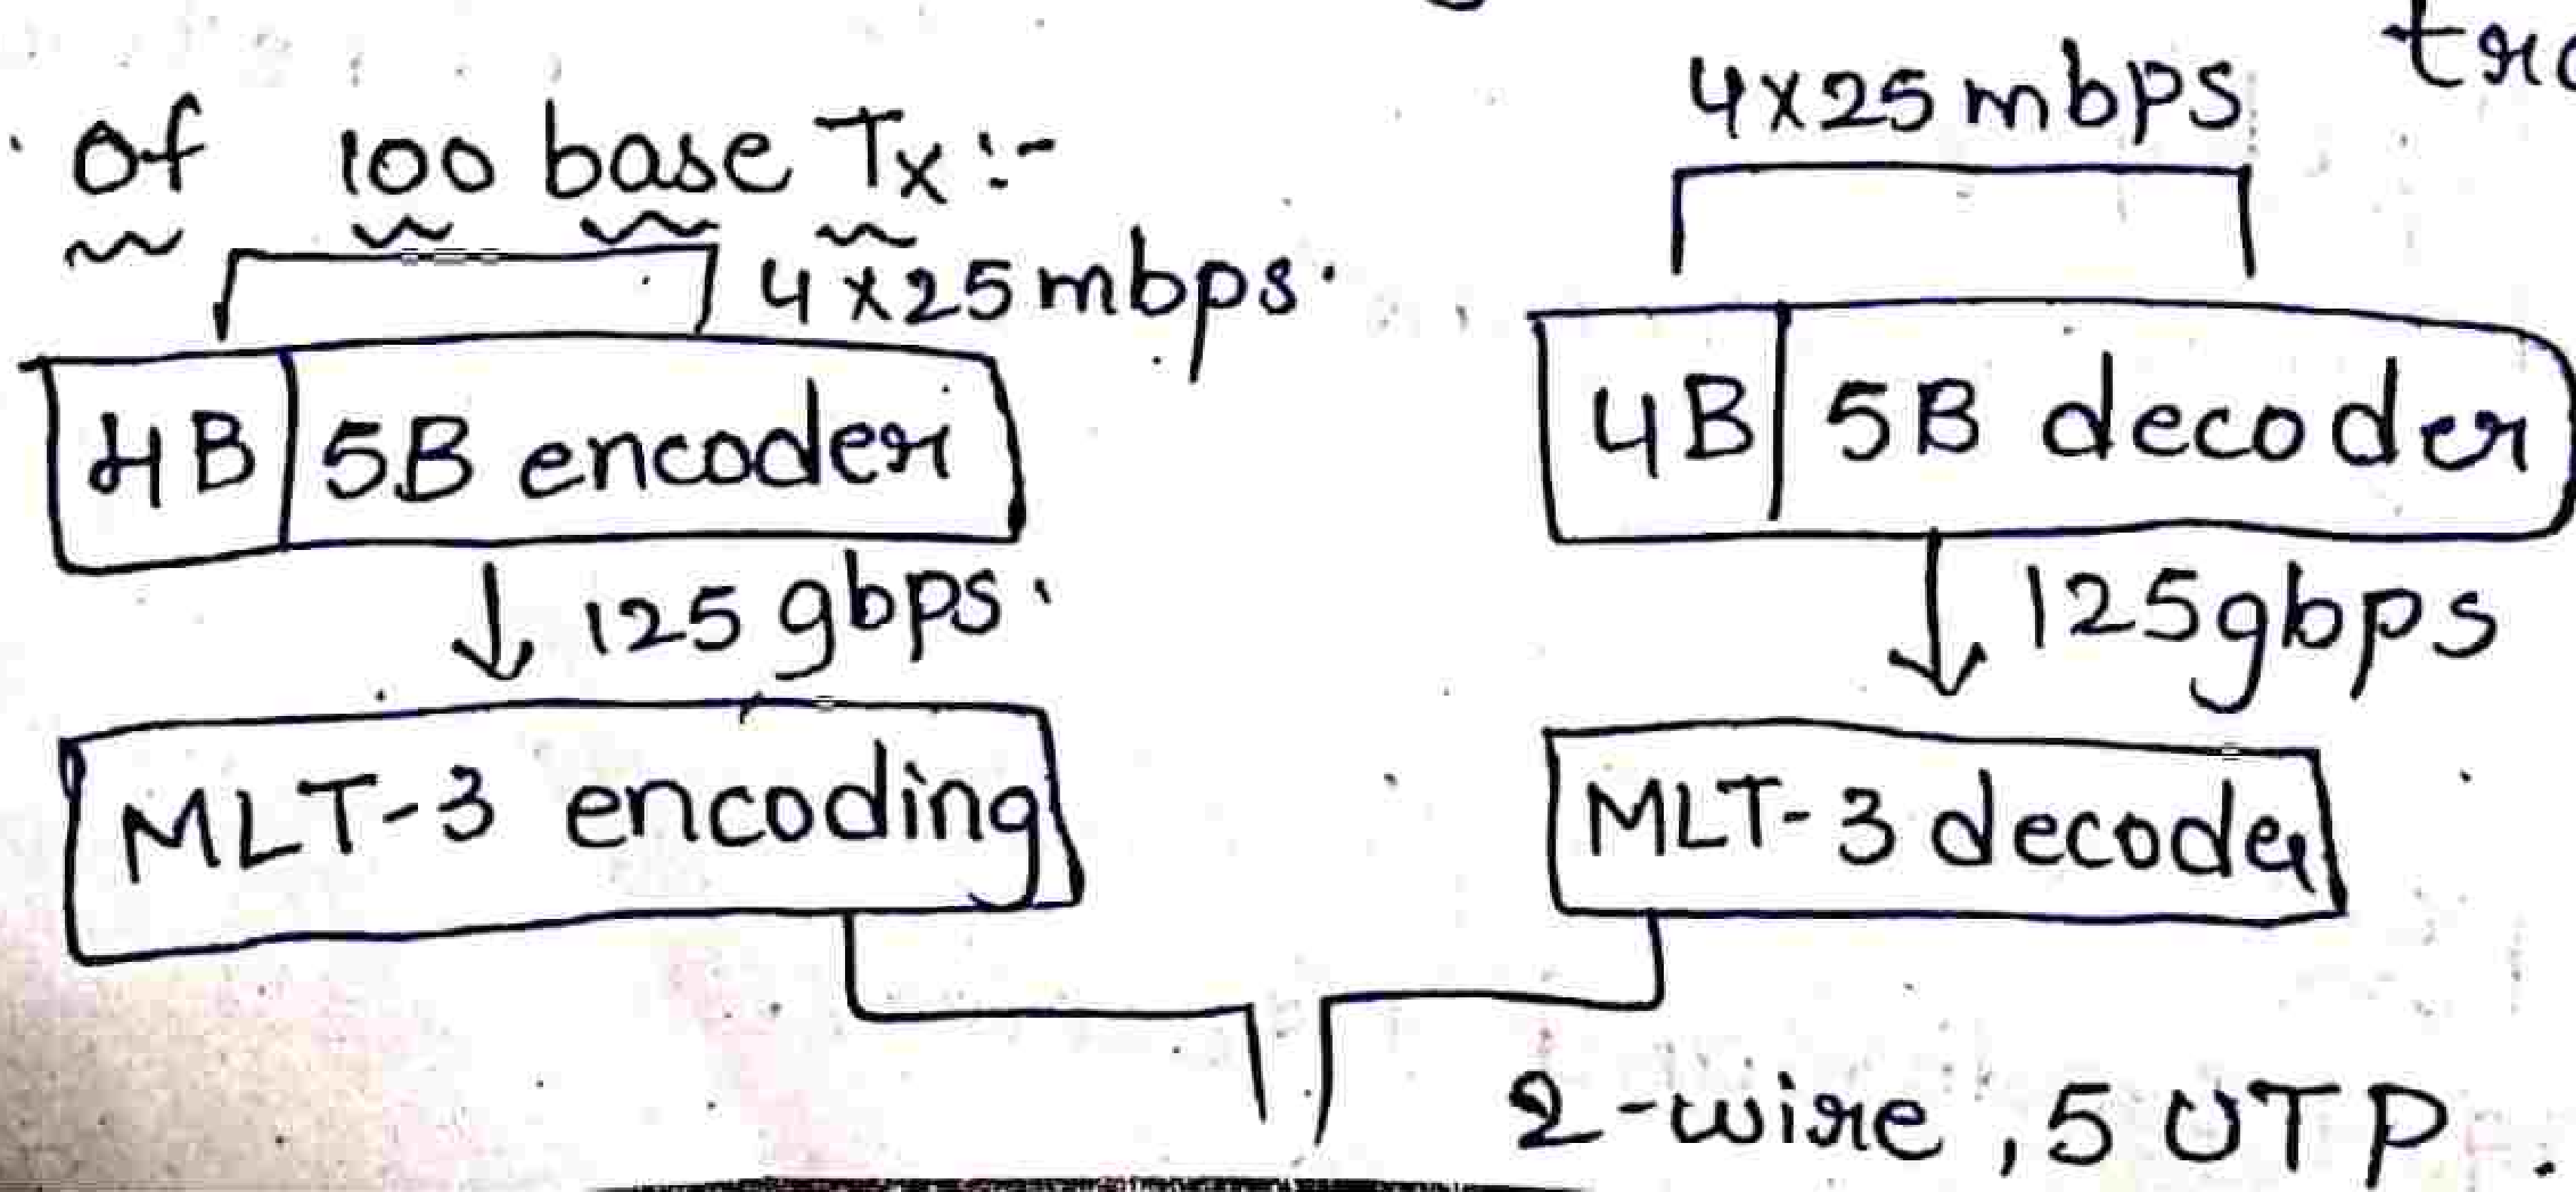 Of 100 base Tx :-
4x25 mbps.
4B 5B encoder
125 gbps.
MLT-3 encoding
4x25 mbps
4B 5B decoder
125 gbps
MLT-3 decoder
2-wire, 5 UTP.